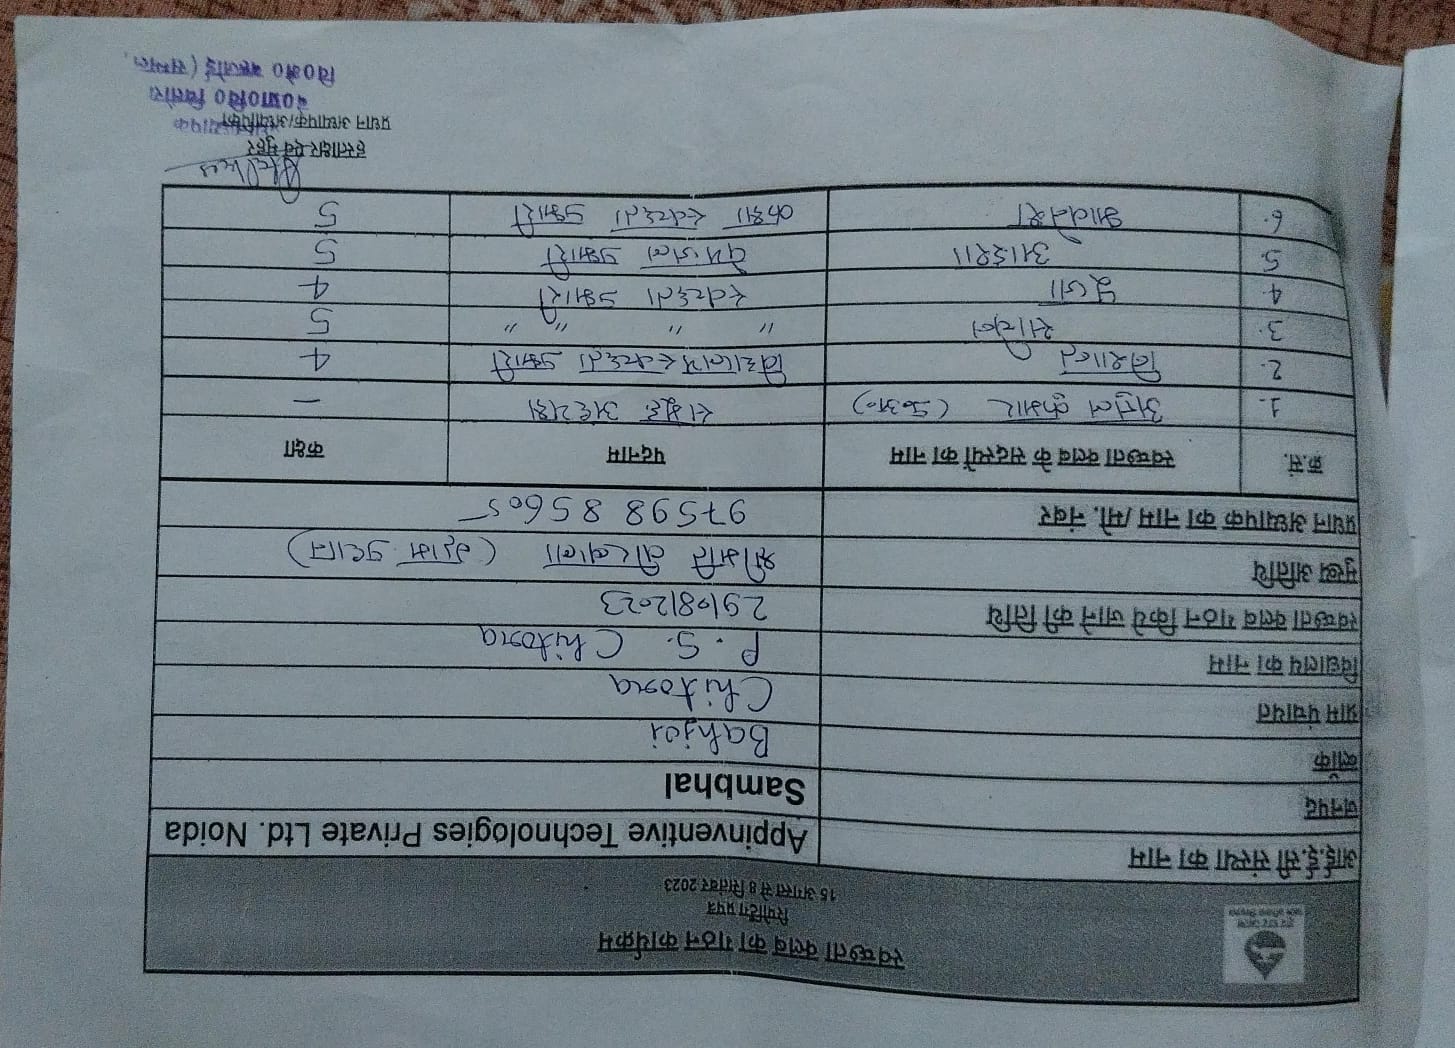 स्वच्छता क्लब का गठन कार्यक्रम
रिपोर्टिंग प्रपत्र
15 अगस्त से 8 सितंबर 2023
आई.ई.सी संस्था का नाम Appinventive Technologies Private Ltd. Noida
जनपद Sambhal
ब्लॉक Bahjoi
ग्राम पंचायत Chitora
विद्यालय का नाम P. S. Chitora
स्वच्छता क्लब गठन किये जाने की तिथि 29/08/2023
मुख्य अतिथि श्रीमति (ग्राम प्रधान)
प्रधान अध्यापक का नाम /मो. नंबर 97598 85605
क्र.सं. स्वच्छता क्लब के सदस्यों का नाम पदनाम कक्षा
1. अतुल कुमार (स०अ०) समूह अध्यक्ष -
2. विशाल विद्यालय स्वच्छता प्रभारी 4
3. साहिल " " " " 5
4. पूजा स्वच्छता प्रभारी 4
5. आइशा पेयजल प्रभारी 5
6. भावेश कक्षा स्वच्छता प्रभारी 5
हस्ताक्षर एवं मुहर
प्रधान अध्यापक/अध्यापिका
वि०क्षे० बहजोई (सम्भल)